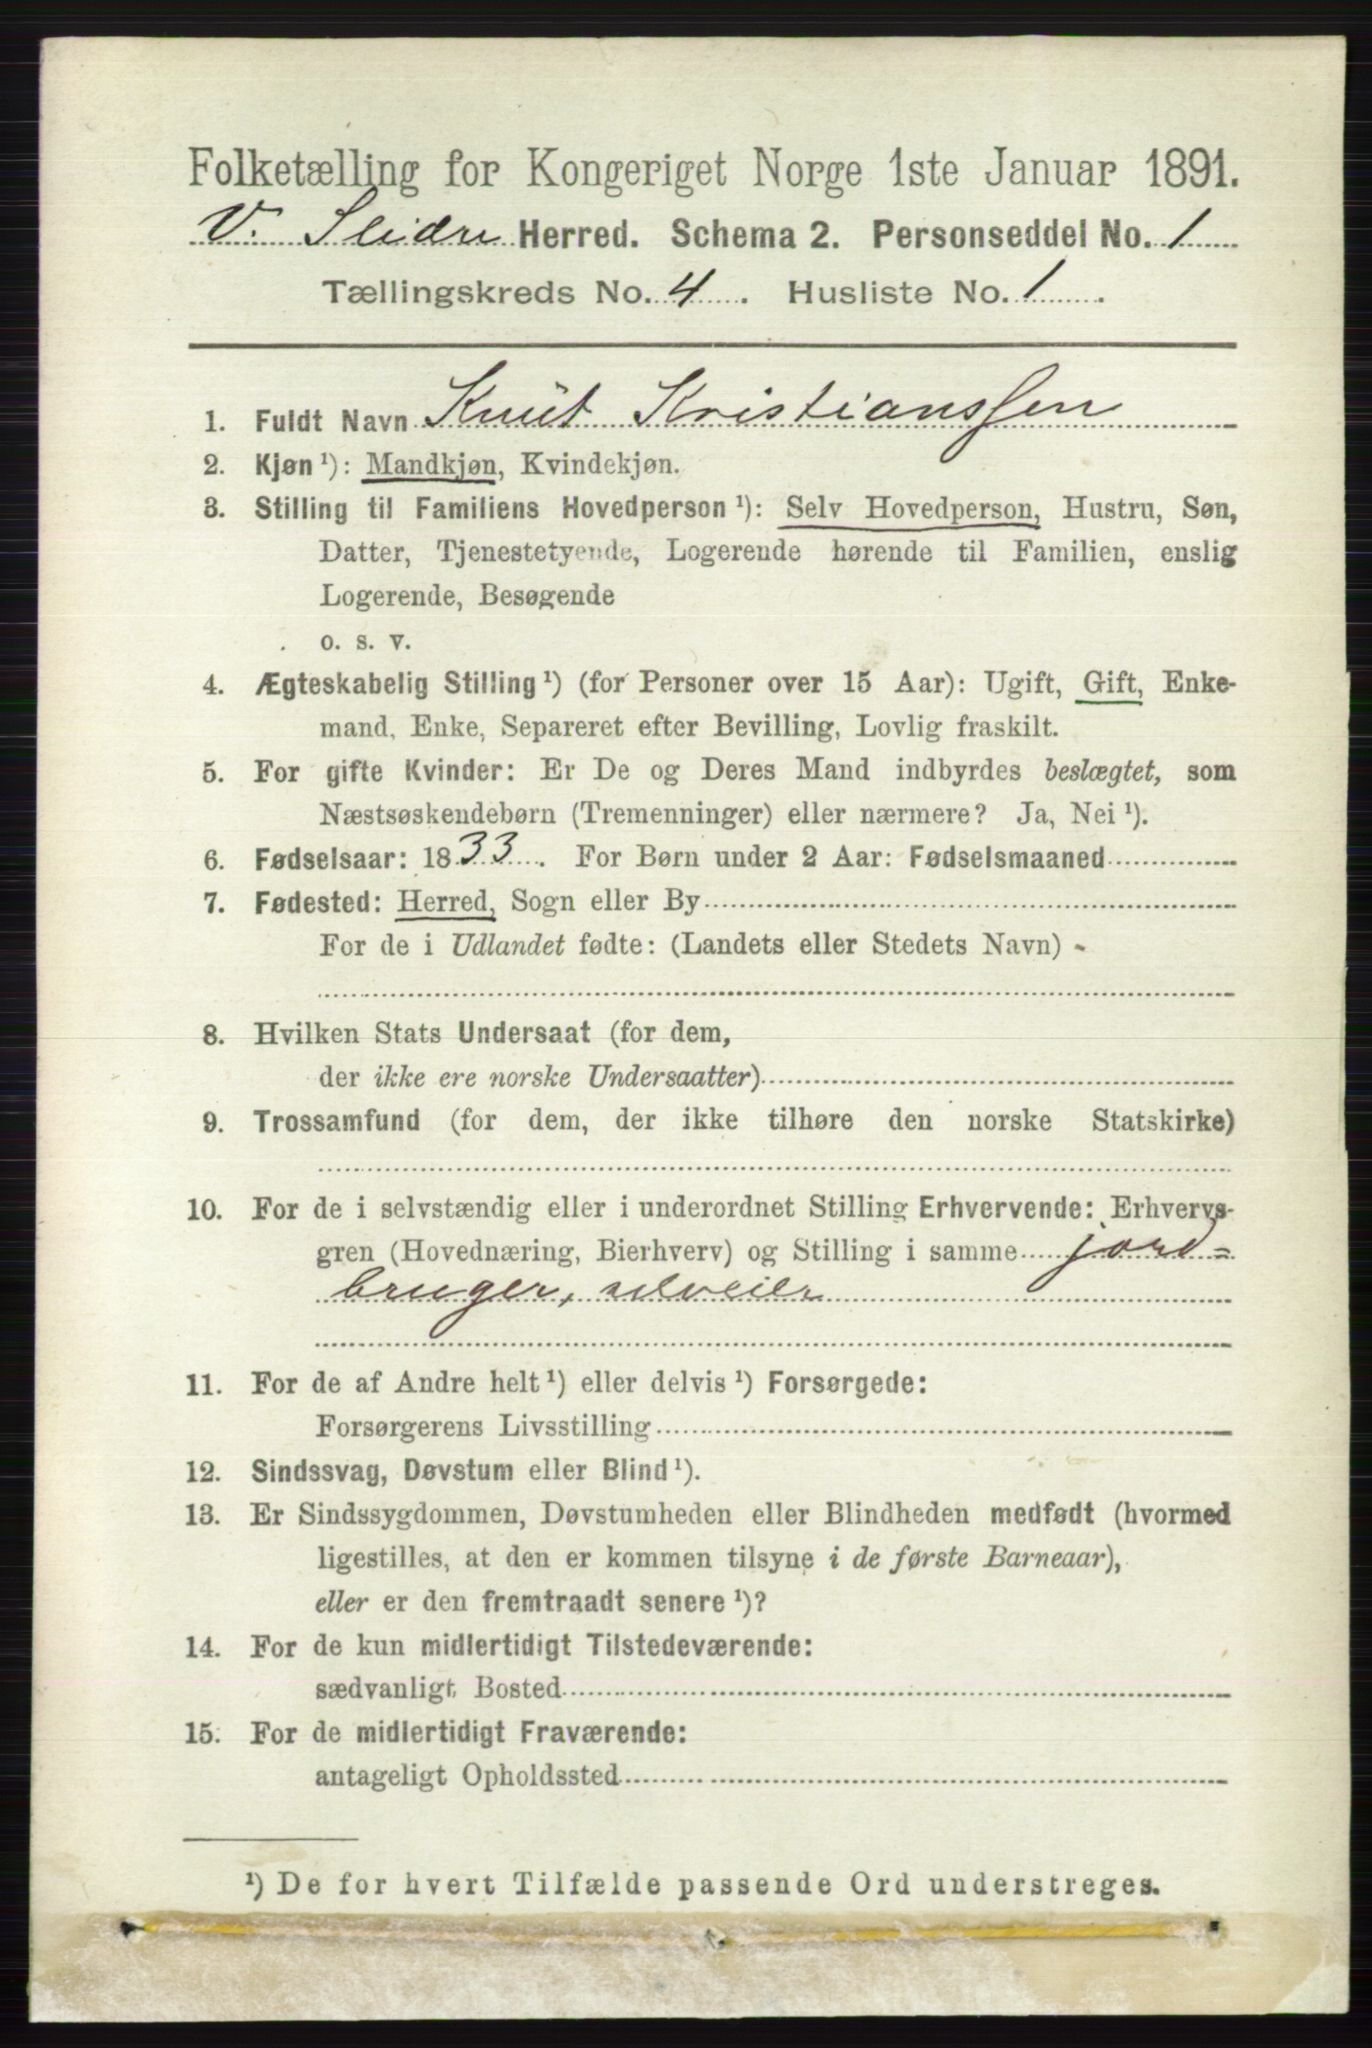 Folketælling for Kongeriget Norge 1ste Januar 1891.
V. Slidre Herred. Schema 2. Personseddel No. 1
Tællingskreds No. 4. Husliste No. 1.
1. Fuldt Navn Knut Kristianssen
2. Kjøn ¹): Mandkjøn, Kvindekjøn.
3. Stilling til Familiens Hovedperson ¹): Selv Hovedperson, Hustru, Søn,
Datter, Tjenestetyende, Logerende hørende til Familien, enslig
Logerende, Besøgende
o. s. v.
4. Ægteskabelig Stilling ¹) (for Personer over 15 Aar): Ugift, Gift, Enke-
mand, Enke, Separeret efter Bevilling, Lovlig fraskilt.
5. For gifte Kvinder: Er De og Deres Mand indbyrdes beslægtet, som
Næstsøskendebørn (Tremenninger) eller nærmere? Ja, Nei ¹).
6. Fødselsaar: 1833. For Børn under 2 Aar: Fødselsmaaned
7. Fødested: Herred, Sogn eller By
For de i Udlandet fødte: (Landets eller Stedets Navn) -
8. Hvilken Stats Undersaat (for dem,
der ikke ere norske Undersaatter)
9. Trossamfund (for dem, der ikke tilhøre den norske Statskirke)
10. For de i selvstændig eller i underordnet Stilling Erhvervende: Erhvervs-
gren (Hovednæring, Bierhverv) og Stilling i samme jord=
bruger, selveier
11. For de af Andre helt ¹) eller delvis ¹) Forsørgede:
Forsørgerens Livsstilling
12. Sindssvag, Døvstum eller Blind ¹).
13. Er Sindssygdommen, Døvstumheden eller Blindheden medfødt (hvormed
ligestilles, at den er kommen tilsyne i de første Barneaar),
eller er den fremtraadt senere ¹)?
14. For de kun midlertidigt Tilstedeværende:
sædvanligt Bosted
15. For de midlertidigt Fraværende:
antageligt Opholdssted
¹) De for hvert Tilfælde passende Ord understreges.